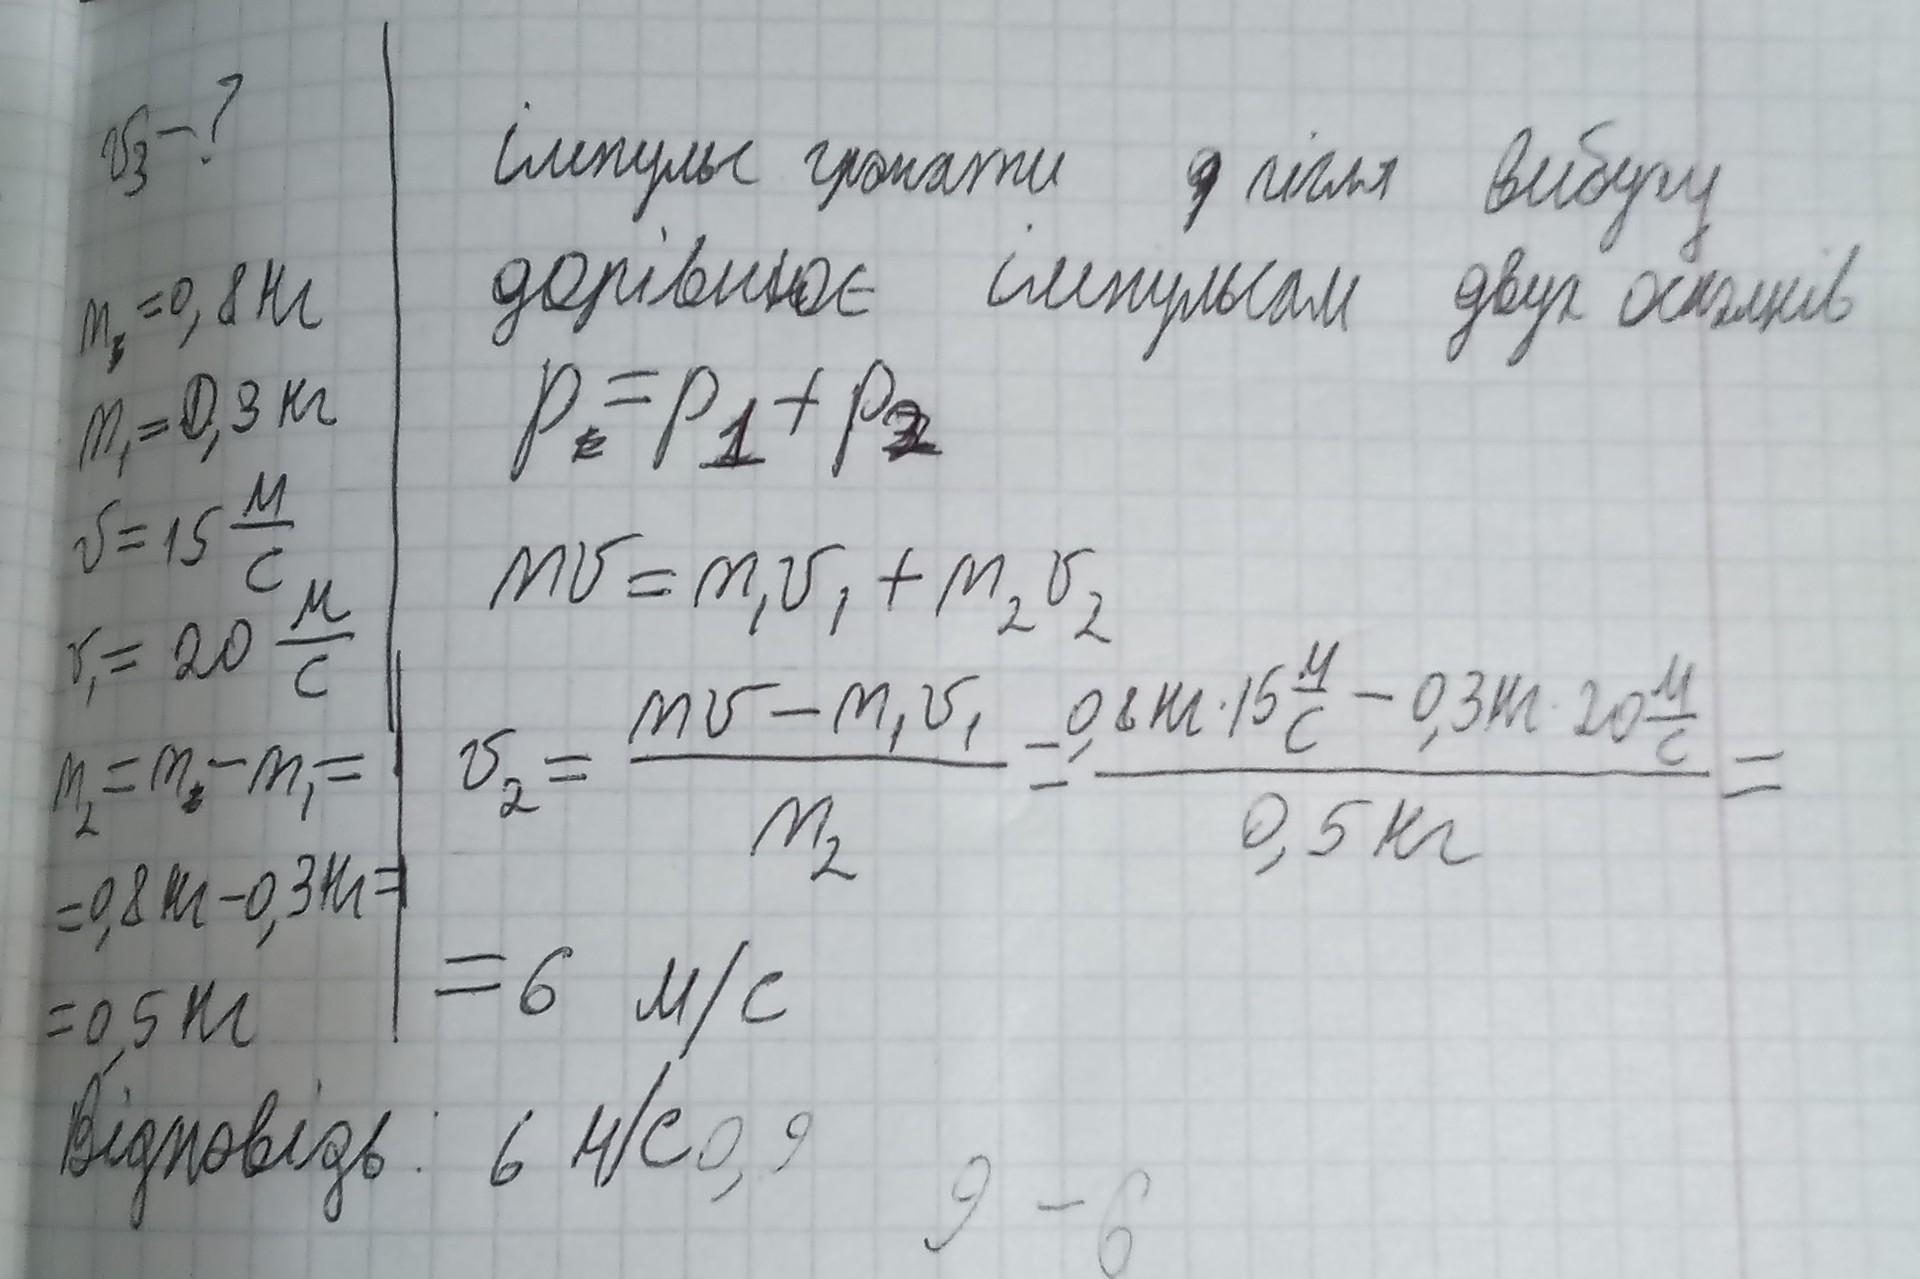 v₃ - ?
m = 0,8 кг
m₁ = 0,3 кг
v = 15 м/с
v₁ = 20 м/с
m₂ = m - m₁ =
= 0,8 кг - 0,3 кг =
= 0,5 кг
імпульс гранати після вибуху
дорівнює імпульсам двух осколків
p = p₁ + p₂
mv = m₁v₁ + m₂v₂
v₂ = (mv - m₁v₁)/m₂ = (0,8 кг · 15 м/с - 0,3 кг · 20 м/с)/0,5 кг =
= 6 м/с
Відповідь: 6 м/с 0,9
9 - 6